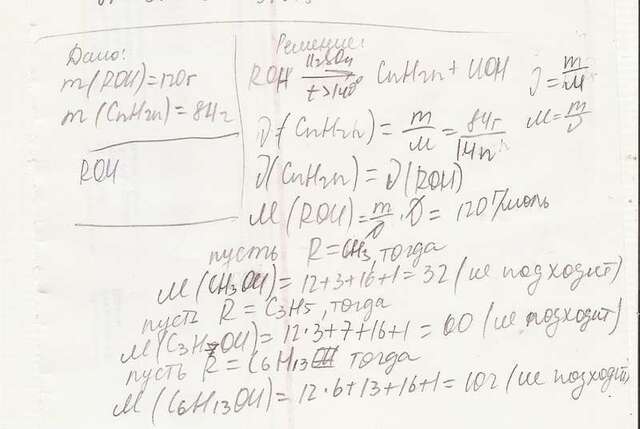 Дано:
m(ROH)=120г
m(CnH2n)=84г
ROH
Решение:
ROH H2SO4 t>140° CnH2n + HOH ν=m/M
ν(CnH2n)=m/M=84г/14n M=m/ν
ν(CnH2n)=ν(ROH)
M(ROH)=m/ν = 120 г/моль
пусть R=CH3, тогда
M(CH3OH)=12+3+16+1=32 (не подходит)
пусть R=C3H5, тогда
M(C3H7OH)=12·3+7+16+1=60 (не подходит)
пусть R=C6H13 тогда
M(C6H13OH)=12·6+13+16+1=102 (не подходит)